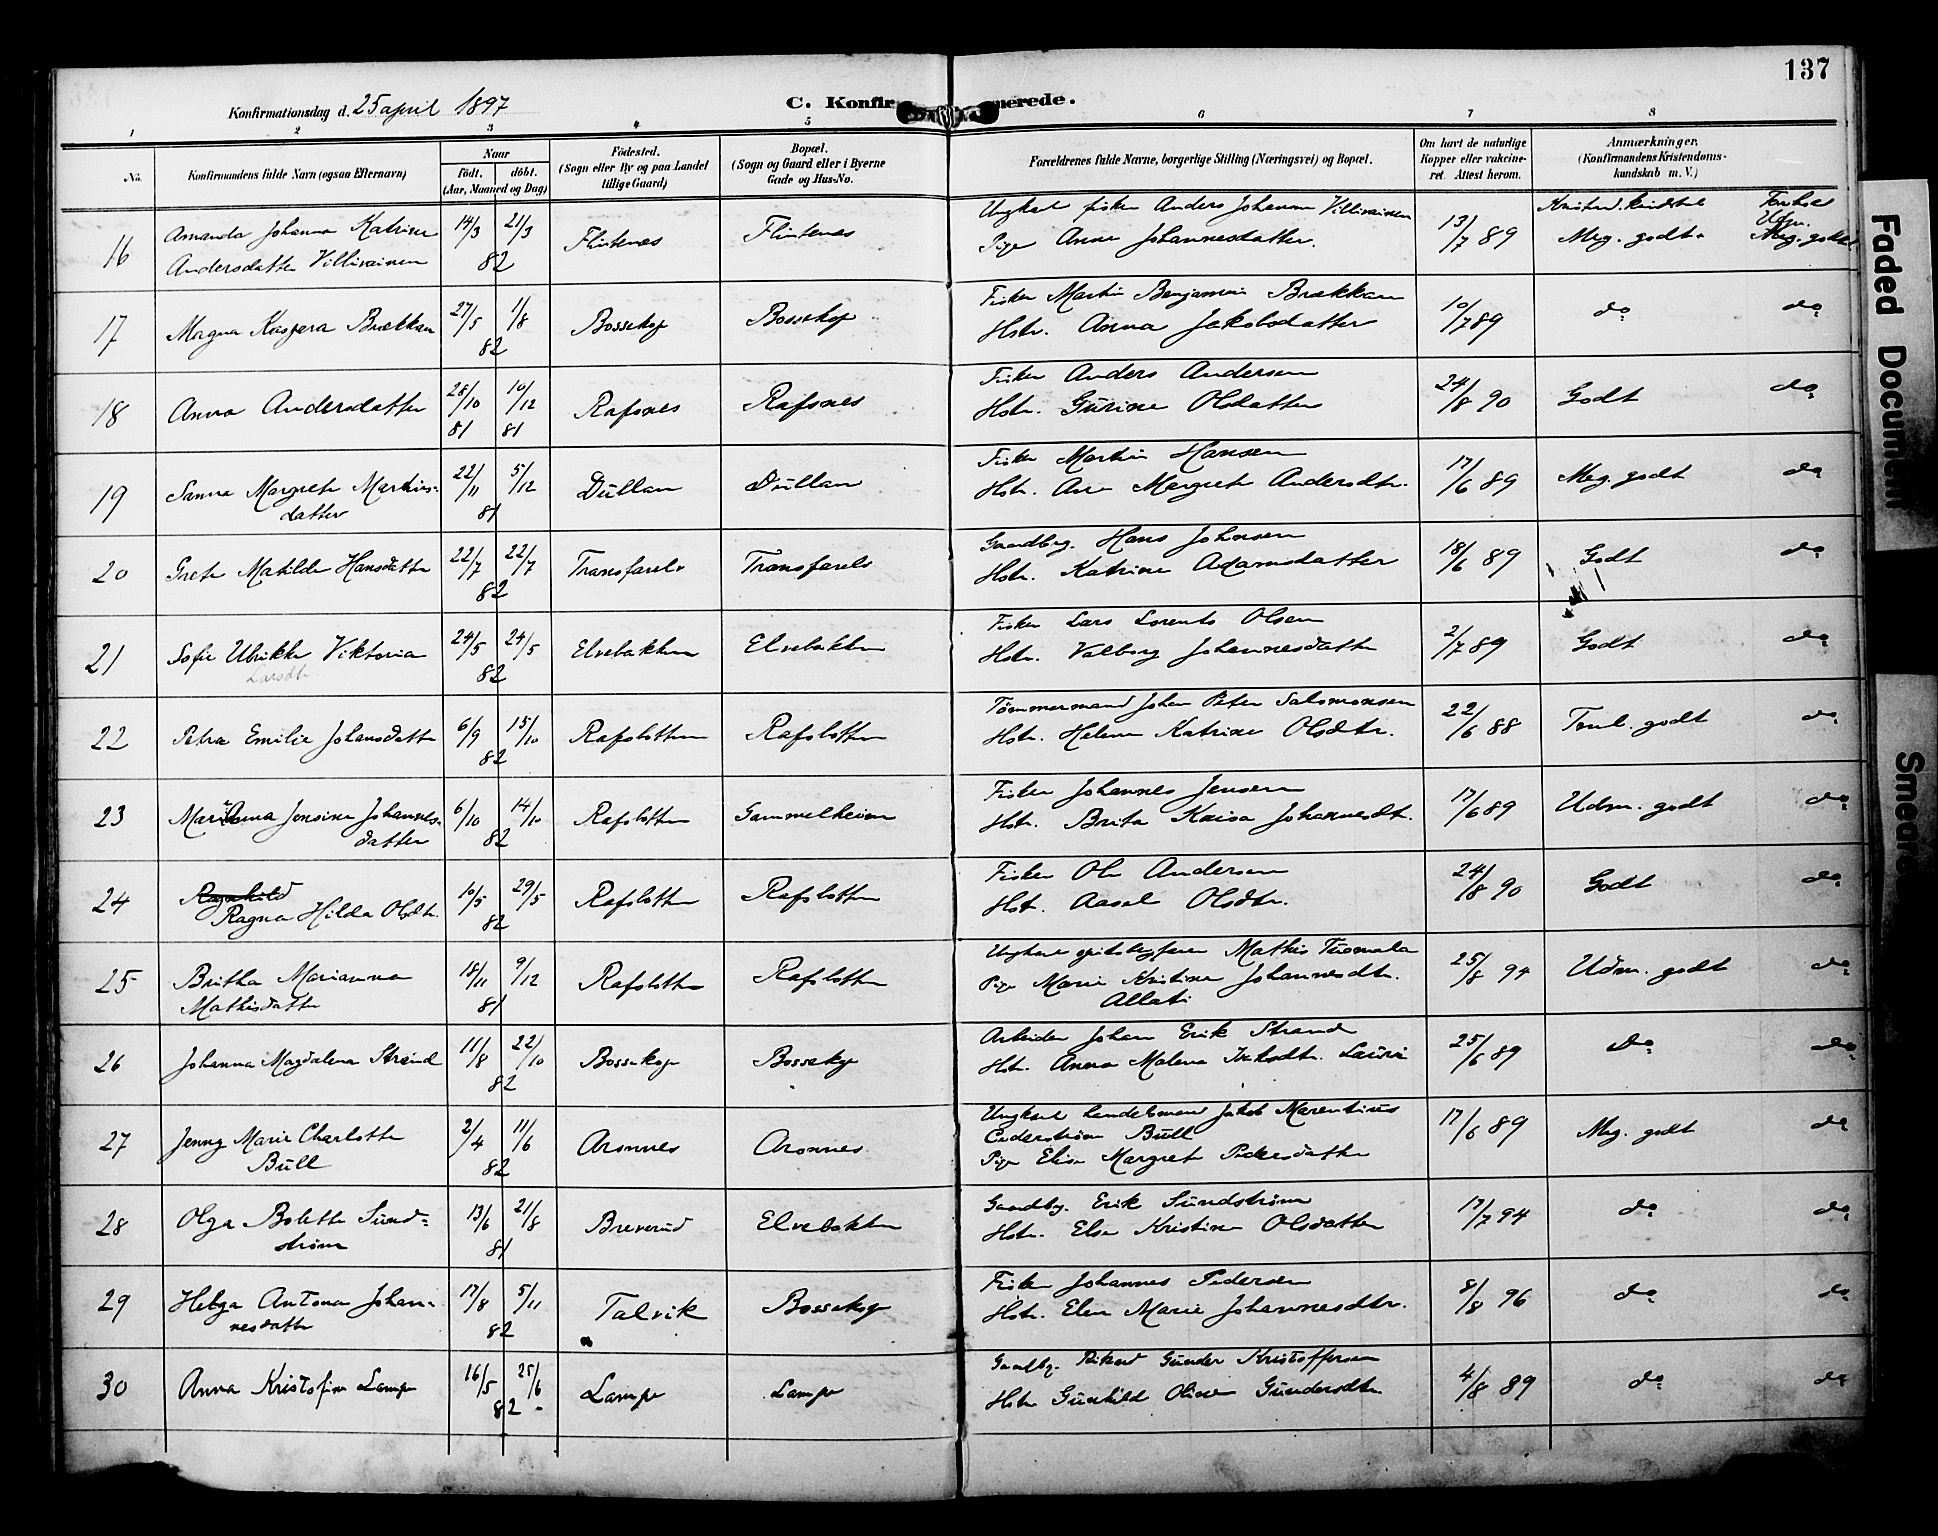 137
Konfirmationsdag d. 25 april 1897
C. Konfir merede.
1 2 3 4 5 6 7 8
No.
Konfirmandens fulde Navn (ogsaa Efternavn)
Naar
födt. döbt.
(Aar, Maaned og Dag)
Födested.
(Sogn eller By og paa Landet
tillige Gaard)
Bopæl.
(Sogn og Gaard eller i Byerne
Gade og Hus-No.
Forældrenes fulde Navne, borgerlige Stilling (Næringsvei) og Bopæl.
Om havt de naturlige
Kopper eller vakcine-
ret. Attest herom.
Anmærkninger.
(Konfirmandens Kristendoms-
kundskab m. V.)
Faded Document
Smears
Ungkarl fisker Anders Johannes Villivainen
16 Amanda Johanna Katrine 14/3 21/3 Flintenes Flintenes Pige Anne Johannesdatter. 13/7 89 Meg. godt. Meg. godt
Andersdatter Villivainen 82
Fisker Martin Benjamin Brækkan
17 Magna Kaspara Brækkan 27/5 1/8 Bossekop Bossekop Hstr. Anna Jakobsdatter 10/7 89 do do
82
Fisker Anders Andersen
18 Anna Andersdatter 28/10 10/12 Rafsnes Rafsnes Hstr. Gurine Olsdatter 24/8 90 Godt do
81 81
Fisker Martin Hansen
19 Sanna Margrete Martins- 22/11 5/12 Dullan Dullan Hstr. Ane Margrete Andersdtr. 17/6 89 Meg. godt do
datter 81
Gaardbrg. Hans Johnsen
20 Grete Matilde Hansdatter 22/7 22/7 Transfarelv Transfarelv Hstr. Katrine Adamsdatter 18/6 89 Godt do
82
Fisker Lars Lorents Olsen
21 Sofie Ulrikke Viktoria 24/5 24/5 Elvebakken Elvebakken Hstr. Valborg Johannesdatter 2/7 89 Godt do
Larsdtr 82
Tømmermand Johan Peter Salomonsen
22 Petra Emilie Johansdatter 6/9 15/10 Rafsbotten Rafsbotten Hstr. Helene Katrine Olsdtr. 22/6 88 godt do
82
Fisker Johannes Jensen
23 Marianna Jensine Johannes- 6/10 14/10 Rafsbotten Gammelheimen Hstr. Brita Kaisa Johannesdt. 17/6 89 Udm. godt do
datter 82
Fisker Ole Andersen
24 Ragnhild 10/5 29/5 Rafsbotten Rafsbotten Hst. Aasel Olsdtr. 24/8 90 Godt do
Ragna Hilda Olsdtr. 82
Ungkarl Mathis Tuomala
25 Britha Marianna 18/11 9/12 Rafsbotten Rafsbotten Pige Marie Kristine Johannesdtr. 25/8 94 Udm. godt do
Mathisdatter 81 Allati
Arbeider Johan Erik Strand
26 Johanna Magdalena Strand 11/8 22/10 Bossekop Bossekop Hstr. Anna Malena Isaksdtr. Lauri 25/6 89 do do
82
Ungkarl Lendsmand Jakob Marentius
27 Jenny Marie Charlotte 2/4 11/6 Aronnes Aronnes Cederstrøm Bull 17/6 89 Meg. godt do
Bull 82 Pige Elise Margrete Pedersdatter
Gaardbg. Erik Sundstrøm
28 Olga Bolette Sund- 13/6 21/8 Breverud Elvebakken Hstr. Else Kristine Olsdatter 17/7 94 do do
strøm 81
Fisker Johannes Pedersen
29 Helga Antona Johan- 17/8 5/11 Talvik Bossekop Hstr. Elen Marie Johannesdtr. 8/8 96 do do
nesdatter 82
Gaardbg. Rikard Gunder Kristoffersen
30 Anna Kristofine Lampe 16/5 25/6 Lampe Lampe Hstr Gunhild Oline Gundersdtr. 4/8 89 do do
82